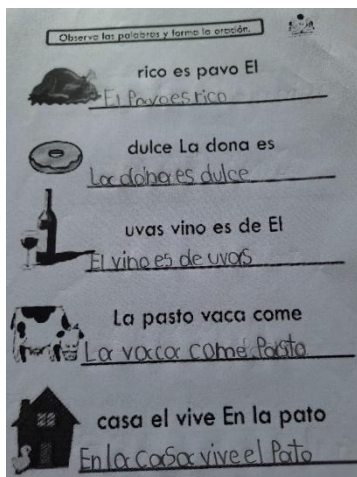 Observa las palabras y forma la oración.
rico es pavo El
El Pavo es rico
dulce La dona es
La dona es dulce
uvas vino es de El
El vino es de uvas
La pasto vaca come
La vacca come Pasto
casa el vive En la pato
En la casa vive el Pato